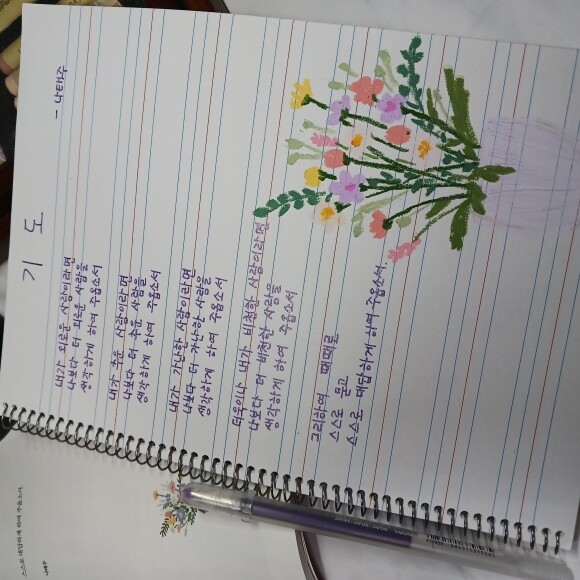 기 도
- 나태주
내가 외로운 사람이라면
나보다 더 외로운 사람을
생각하게 하여 주옵소서
내가 추운 사람이라면
나보다 더 추운 사람을
생각하게 하여 주옵소서
내가 가난한 사람이라면
나보다 더 가난한 사람을
생각하게 하여 주옵소서
더욱이나 내가 비천한 사람이라면
나보다 더 비천한 사람을
생각하게 하여 주옵소서
그리하여 때때로
스스로 묻고
스스로 대답하게 하여 주옵소서.
스스로 대답하게 하여 주옵소서.
나태주